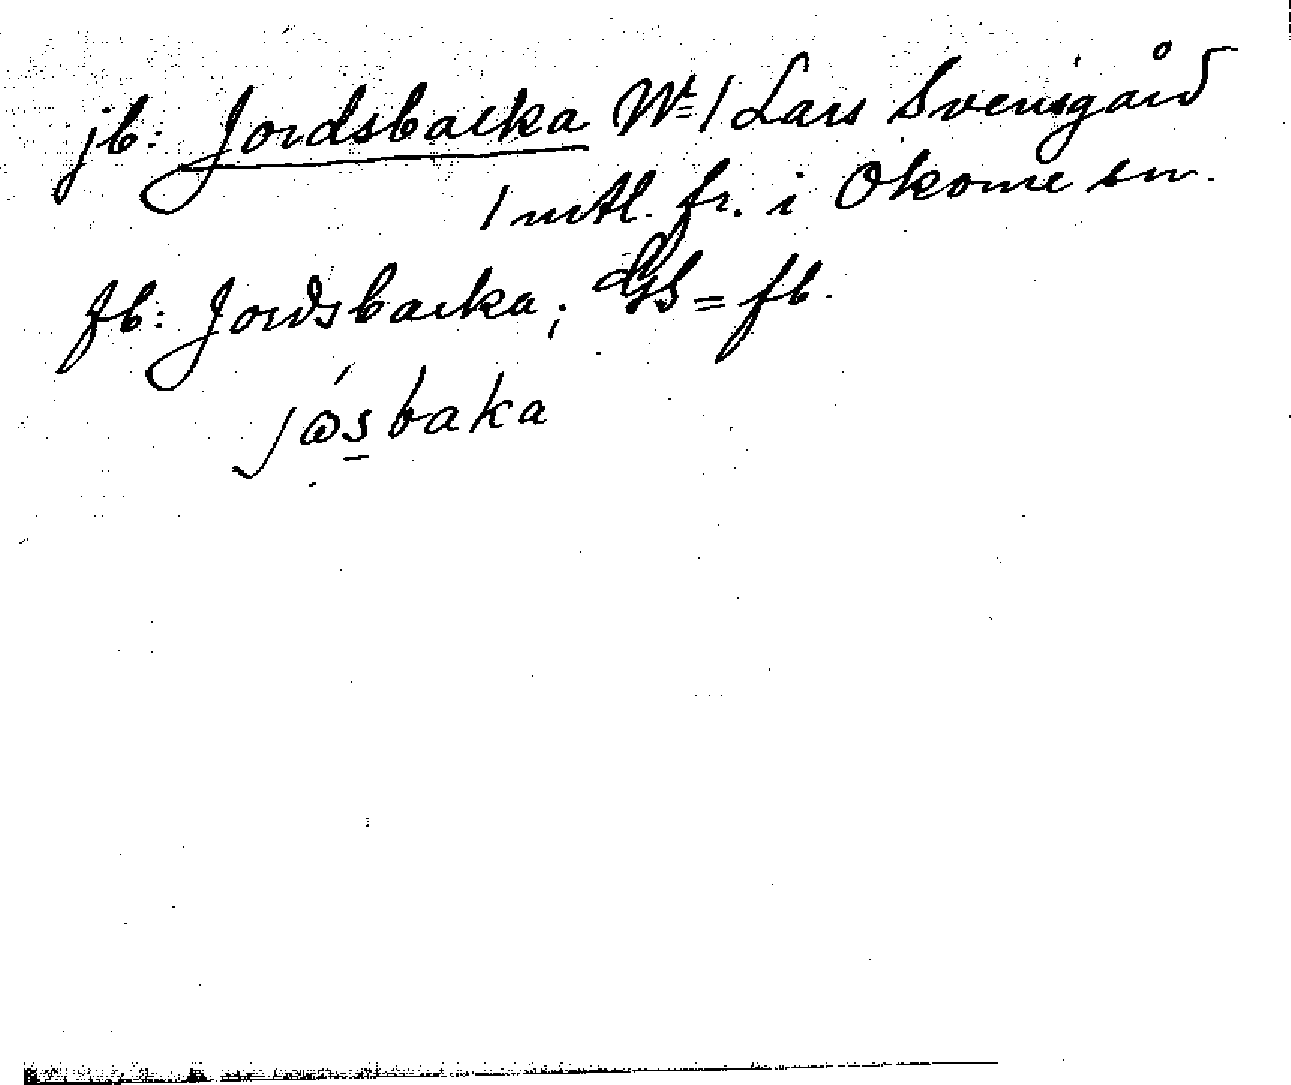 jb: Jordsbacka Nº 1 Lars Svensgård
1 mtl. fr. i Okome sn.
fb: Jordsbacka; GS = fb.
jɷ́s̲baka